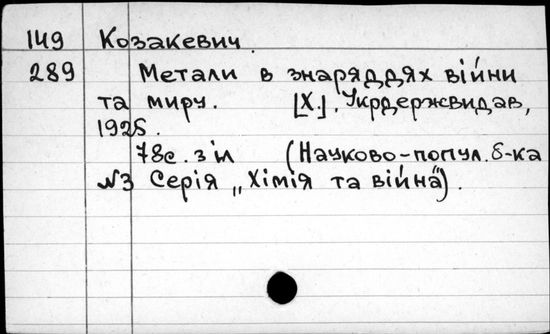 149 Козакевич.
289 Метали в знаряддях війни
та миру. [Х.]. Укрдержвидав,
1925.
78с. з іл (Науково-попул. б-ка
№3 Серія „Хімія та війна").